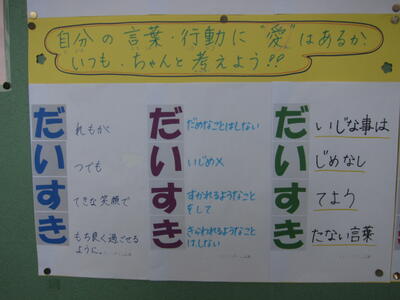 自分の言葉・行動に“愛”はあるか、
いつも、ちゃんと考えよう!!
だれもが
いつでも
すてきな笑顔で
きもち良く過ごせる
ように。
だめなことはしない
いじめ×
すかれるようなこと
をして
きらわれるようなこと
はしない
だいじな事は
いじめなし
すてよう
きたない言葉